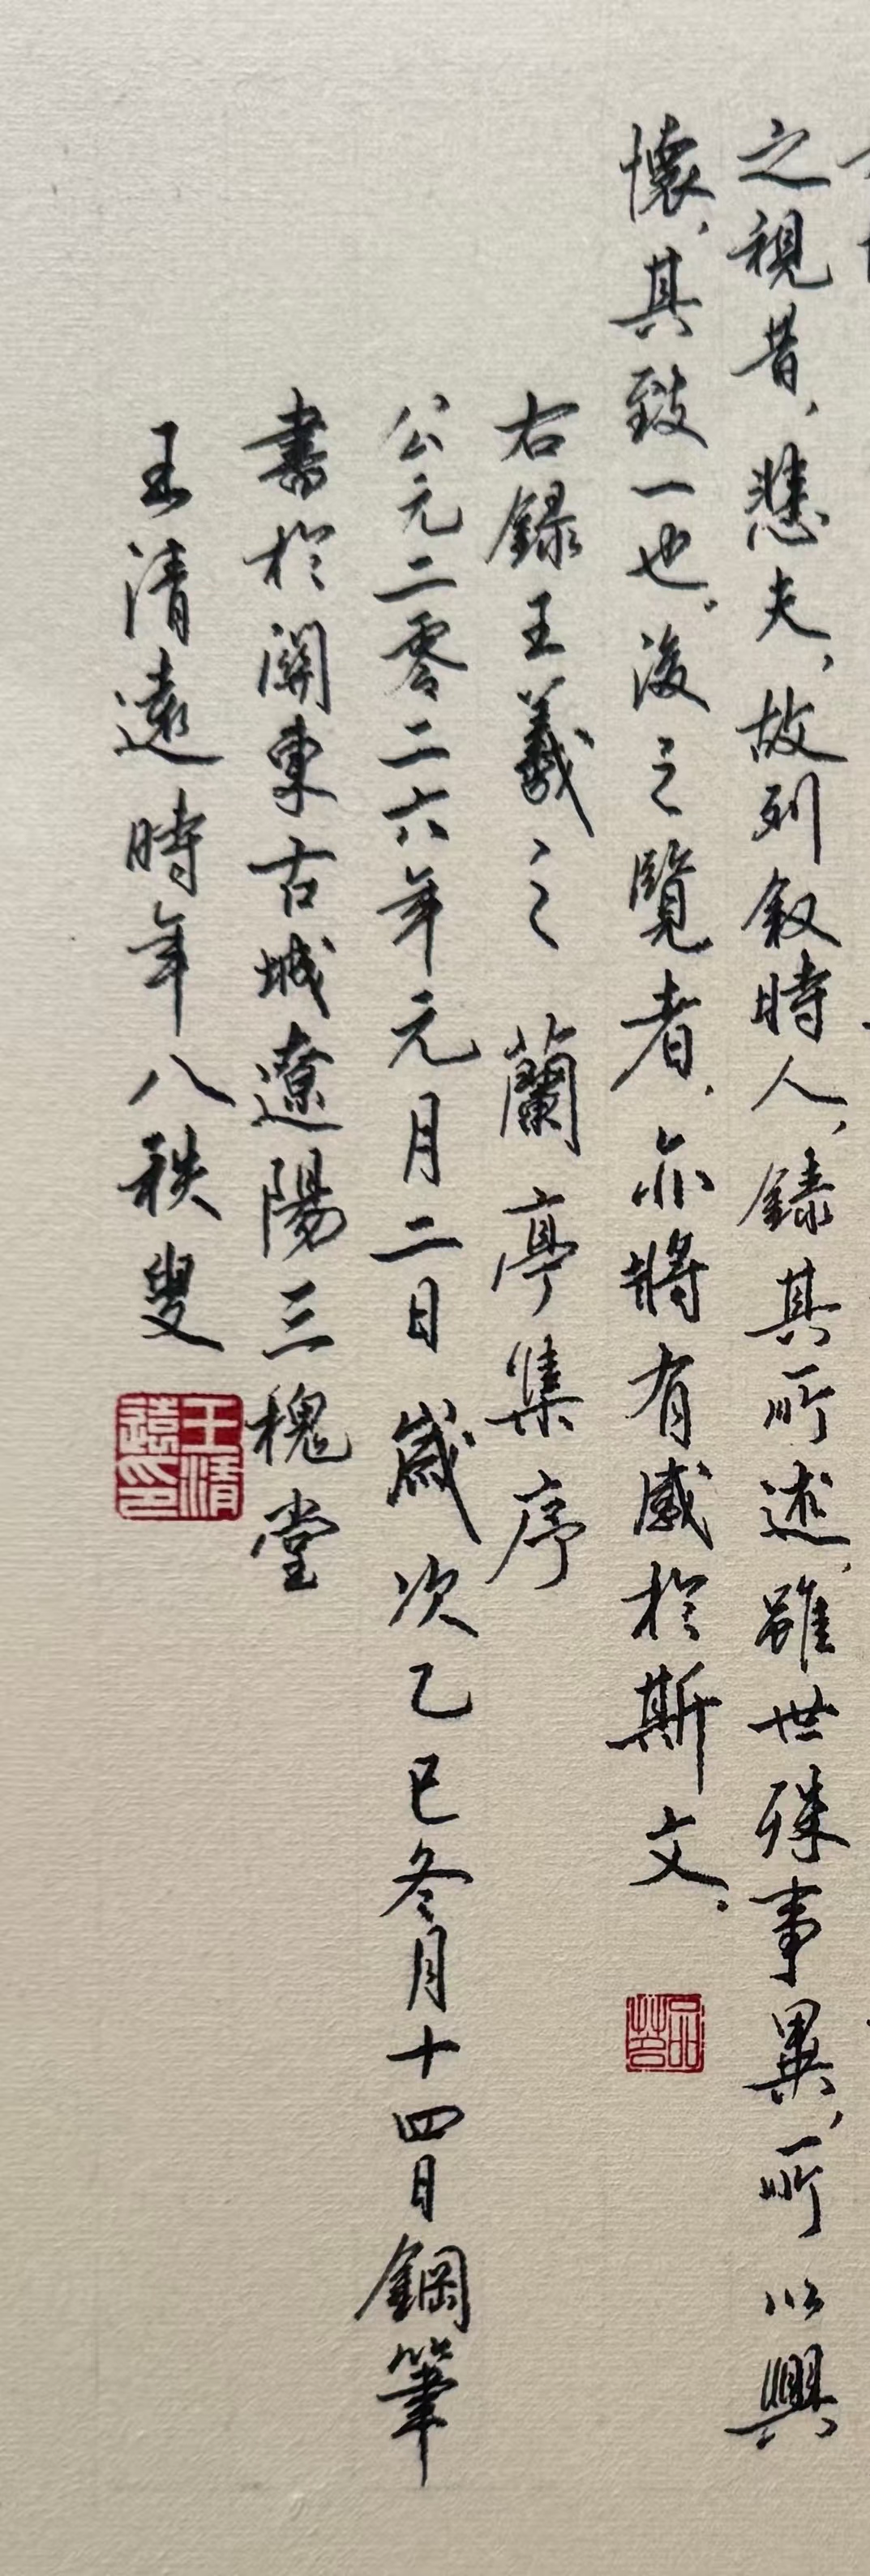 之視昔，悲夫，故列叙時人，録其所述，雖世殊事異，所以興
懷，其致一也。後之覽者，亦將有感於斯文。
右録王羲之 蘭亭集序
公元二零二六年元月二日 歲次乙巳冬月十四日鋼筆
書於關東古城遼陽三槐堂
王清遠時年八秩叟
王清遠印